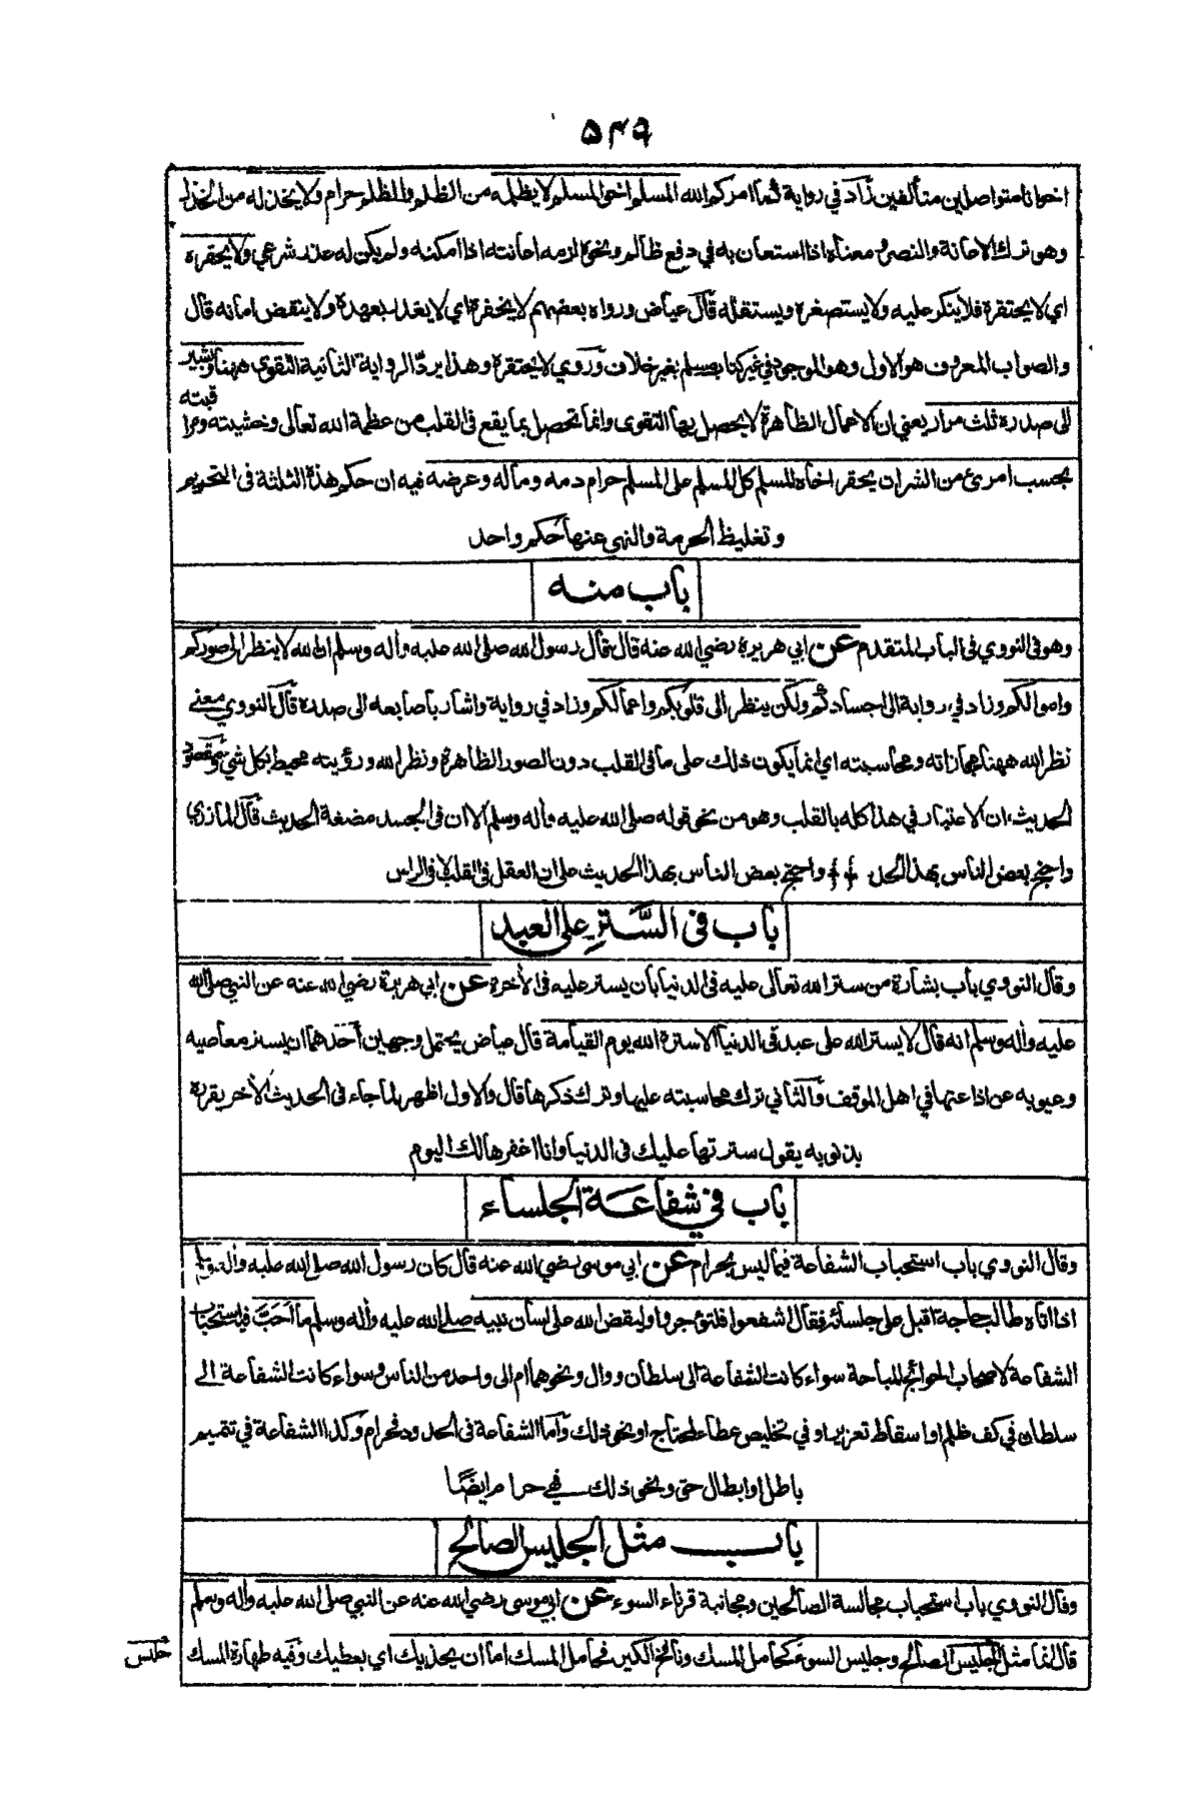 ۵۴۹
اخوانا متواصلين متألفين زاد في رواية كما امركم الله المسلم اخو المسلم لا يظلمه من الظلم والظلم حرام ولا يخذله من الخذل
وهو ترك الاعانة والنصر ومعناه اذا استعان به في دفع ظالم ونحوه لزمه اعانته اذا امكنه ولم يكن له عذر شرعي ولا يحقره
اي لا يحتقره فلا يتكبر عليه ولا يستصغره ويستقله قال عياض ورواه بعضهم لا يخفره اي لا يغدر بعهده ولا ينقض امانه قال
والصواب المعروف هو الاول وهو الموجود في غير كتاب مسلم بغير خلاف وروي لا يحتقره وهذا يرد الرواية الثانية التقوى ههنا ويشير
الى صدره ثلث مرار يعني ان الاعمال الظاهرة لا يحصل بها التقوى وانما تحصل بما يقع في القلب من عظمة الله تعالى وخشيته ومرا
قبته
بحسب امرئ من الشر ان يحقر اخاه المسلم كل المسلم على المسلم حرام دمه وماله وعرضه فيه ان حكم هذه الثلثة في التحريم
وتغليظ الحرمة والنهي عنها حكم واحد
باب منه
وهو في النووي في الباب المتقدم عن ابي هريرة رضي الله عنه قال قال رسول الله صلى الله عليه واله وسلم ان الله لا ينظر الى صوركم
واموالكم وزاد في رواية الى اجسادكم ولكن ينظر الى قلوبكم واعمالكم وزاد في رواية واشار باصابعه الى صدره قال النووي معنى
نظر الله ههنا مجازاته ومحاسبته اي انما يكون ذلك على ما في القلب دون الصور الظاهرة ونظر الله ورؤيته محيط بكل شيء ومقصود
الحديث ان الاعتبار في هذا كله بالقلب وهو من نحو قوله صلى الله عليه واله وسلم الا ان في الجسد مضغة الحديث قال المازري
واحتج بعض الناس بهذا الحد واحتج بعض الناس بهذا الحديث على ان العقل في القلب لا في الراس
باب في السَّترِ على العبد
وقال النووي باب بشارة من ستر الله تعالى عليه في الدنيا بان يستر عليه في الاخرة عن ابي هريرة رضي الله عنه عن النبي صلى الله
عليه واله وسلم انه قال لا يستر الله على عبد في الدنيا الا ستره الله يوم القيامة قال عياض يحتمل وجهين احدهما ان يستر معاصيه
وعيوبه عن اذاعتها في اهل الموقف والثاني ترك محاسبته عليها وترك ذكرها قال والاول اظهر لما جاء في الحديث الاخر يقرره
بذنوبه يقول سترتها عليك في الدنيا وانا اغفرها لك اليوم
باب في شفاعة الجلساء
وقال النووي باب استحباب الشفاعة فيما ليس بحرام عن ابي موسى رضي الله عنه قال كان رسول الله صلى الله عليه واله وسلم
اذا اتاه طالب حاجة اقبل على جلسائه فقال اشفعوا فلتؤجروا وليقض الله على لسان نبيه صلى الله عليه واله وسلم ما احَبَّ فيه استحباب
الشفاعة لاصحاب الحوائج المباحة سواء كانت الشفاعة الى سلطان ووال ونحوهما ام الى واحد من الناس وسواء كانت الشفاعة الى
سلطان في كف ظلم او اسقاط تعزير او في تخليص عطاء لمحتاج او نحو ذلك واما الشفاعة في الحدود فحرام وكذا الشفاعة في تتميم
باطل او ابطال حق ونحو ذلك فهي حرام ايضًا
باب مثل الجليس الصالح
وقال النووي باب استحباب مجالسة الصالحين ومجانبة قرناء السوء عن ابي موسى رضي الله عنه عن النبي صلى الله عليه واله وسلم
قال انما مثل الجليس الصالح وجليس السوء كحامل المسك ونافخ الكير فحامل المسك اما ان يحذيك اي يعطيك وفيه طهارة المسك